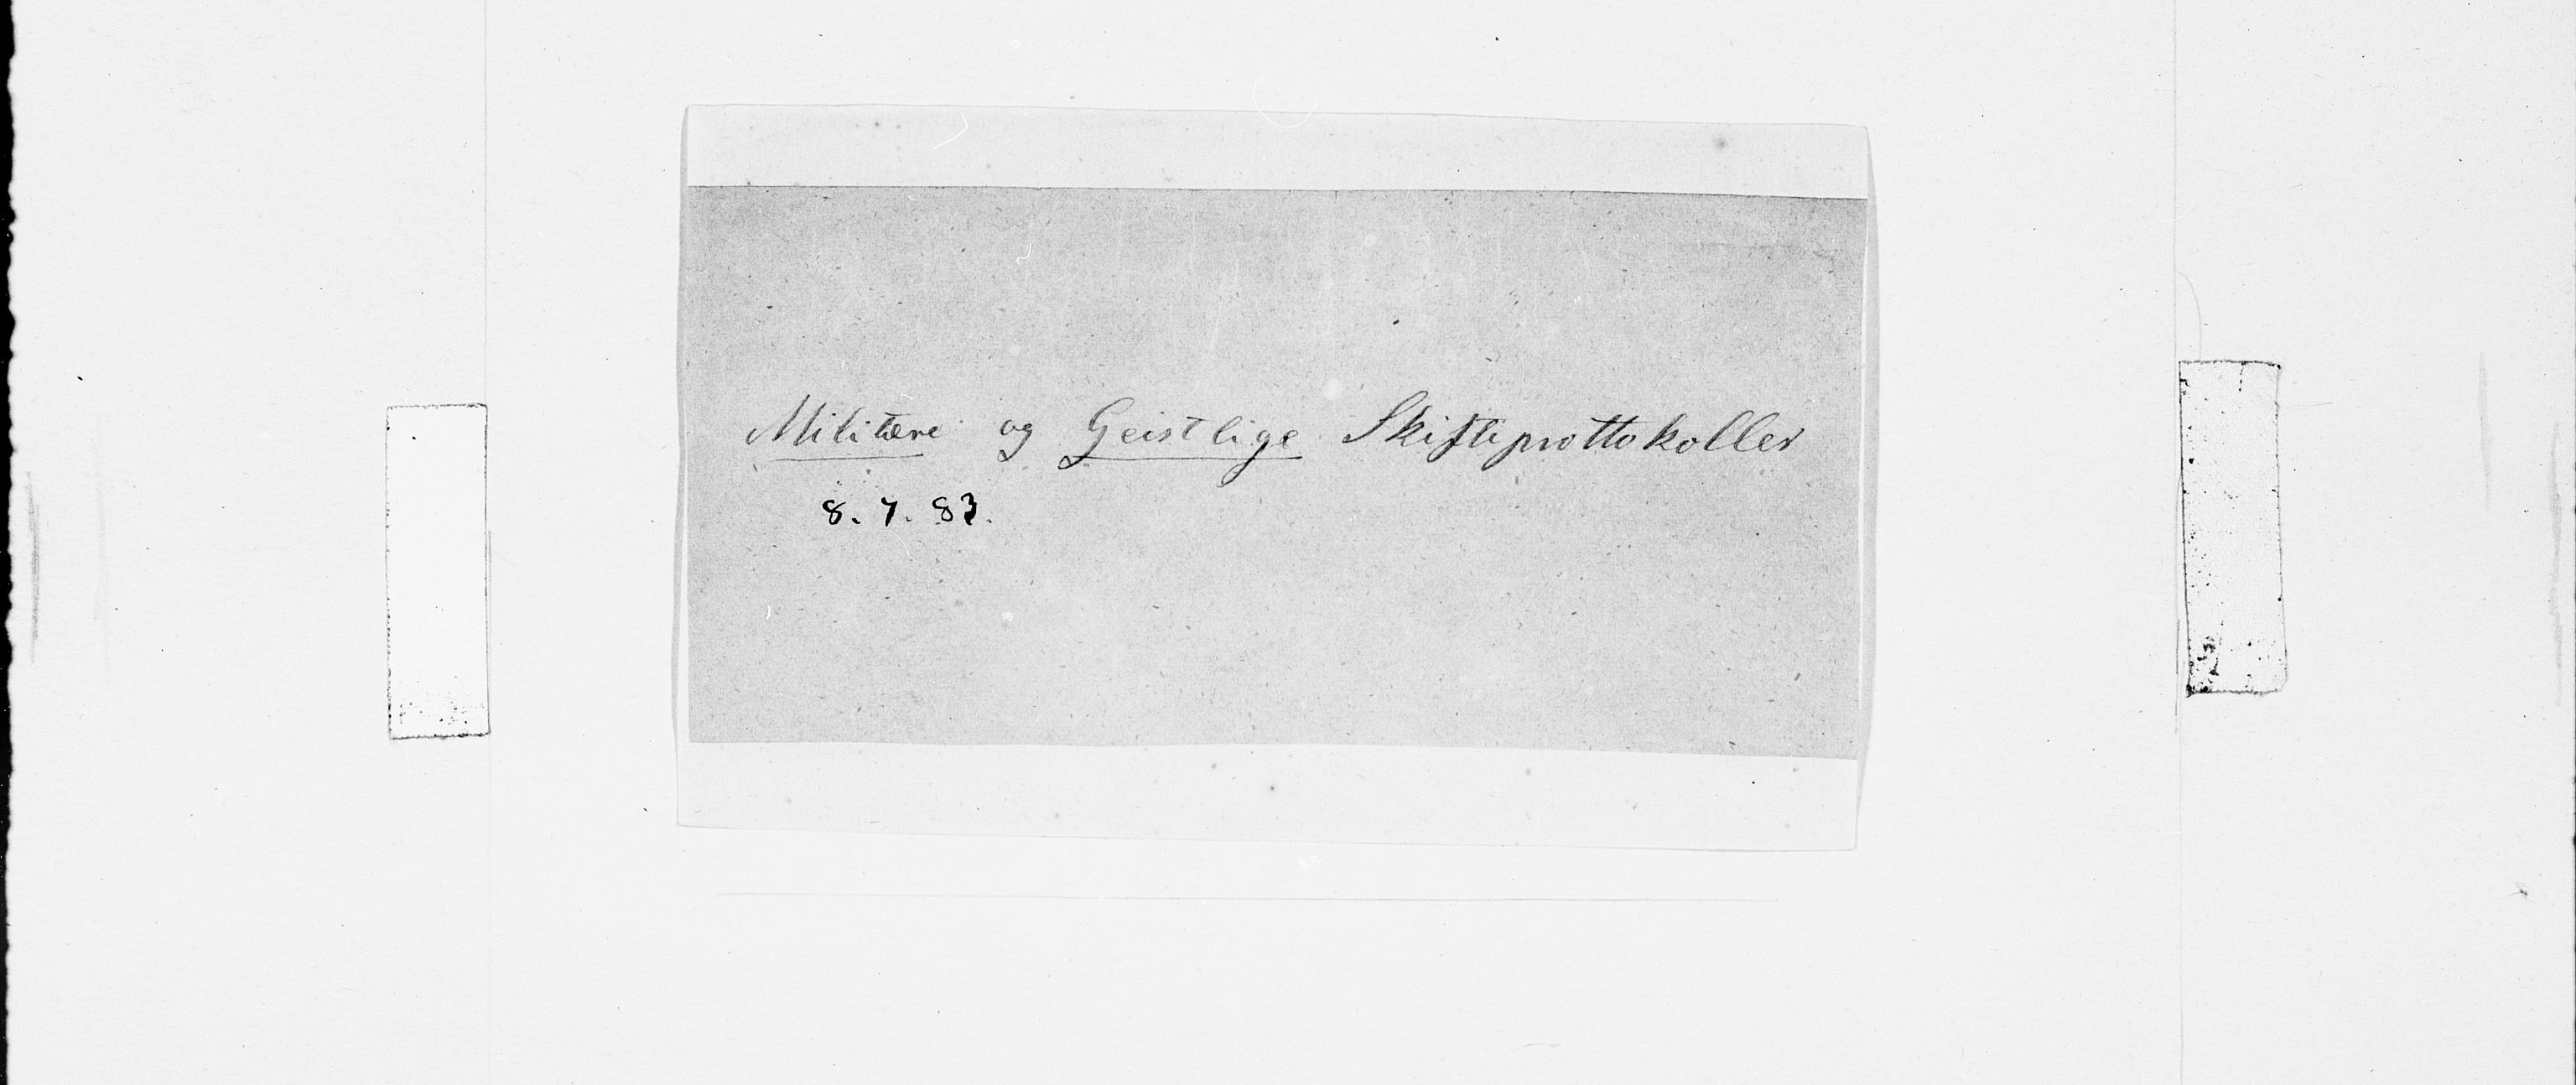 Militære og Geistlige Skifteprottokoller
8. 7. 83.